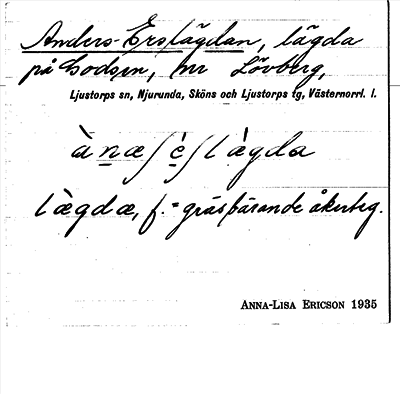 Anders-Erslägdan, lägda
på Godsen, nr Lövberg,
Ljustorps sn, Njurunda, Sköns och Ljustorps tg, Västernorrl. l.
lægdæ, f. = gräsbärande åkerteg.
ANNA-LISA ERICSON 1935